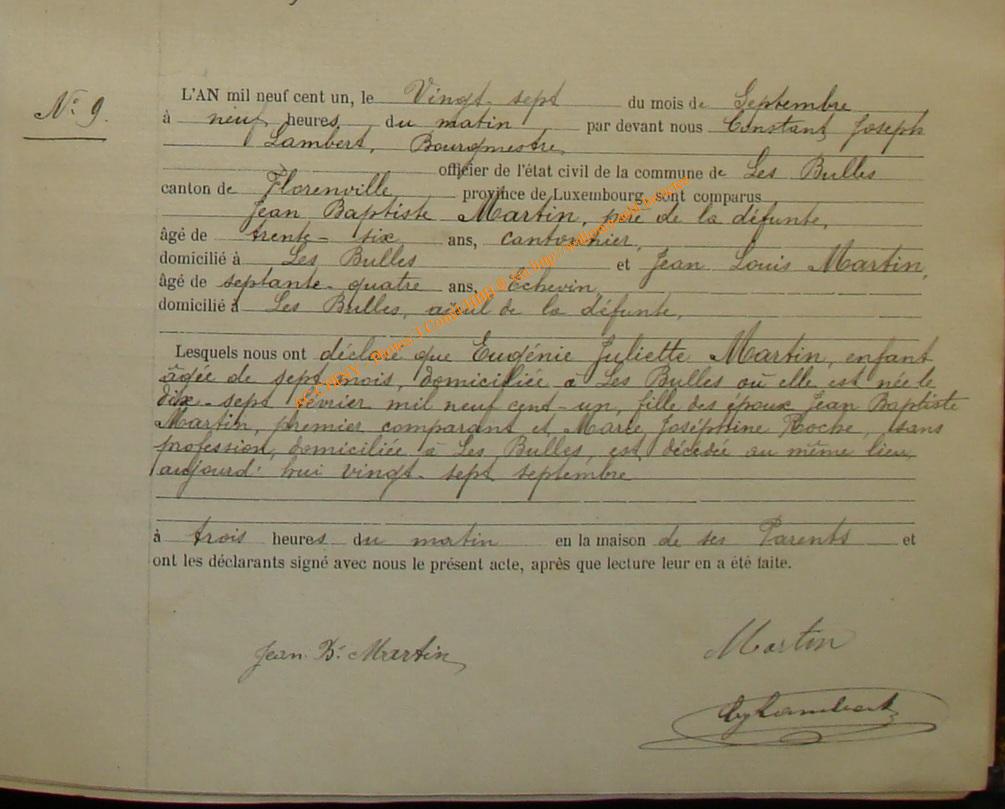 N° 9.
L'AN mil neuf cent un, le Vingt-sept du mois de Septembre
à neuf heures du matin par devant nous Constant Joseph
Lambert, Bourgmestre
officier de l'état civil de la commune de Les Bulles
canton de Florenville province de Luxembourg, sont comparus
Jean Baptiste Martin, père de la défunte,
âgé de trente-six ans, cantonnier,
domicilié à Les Bulles et Jean Louis Martin,
âgé de septante-quatre ans, Echevin,
domicilié à Les Bulles, aïeul de la défunte,
Lesquels nous ont déclaré que Eugénie Juliette Martin, enfant
âgée de sept mois, domiciliée à Les Bulles où elle est née le
dix-sept février mil neuf cent-un, fille des époux Jean Baptiste
Martin, premier comparant et Marie Joséphine Roche, sans
profession, domiciliée à Les Bulles, est décédée au même lieu,
aujourd'hui vingt-sept septembre
à trois heures du matin en la maison de ses Parents et
ont les déclarants signé avec nous le présent acte, après que lecture leur en a été faite.
Jean Bte Martin
Martin
Lambert